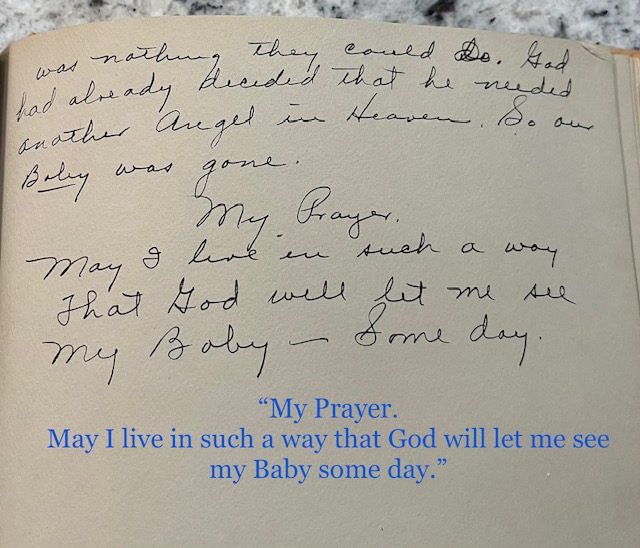 was nothing they could do. God
had already decided that he needed
another Angel in Heaven. So our
Baby was gone.
My Prayer.
May I live in such a way
That God will let me see
My Baby – Some day.
“My Prayer.
May I live in such a way that God will let me see
my Baby some day.”